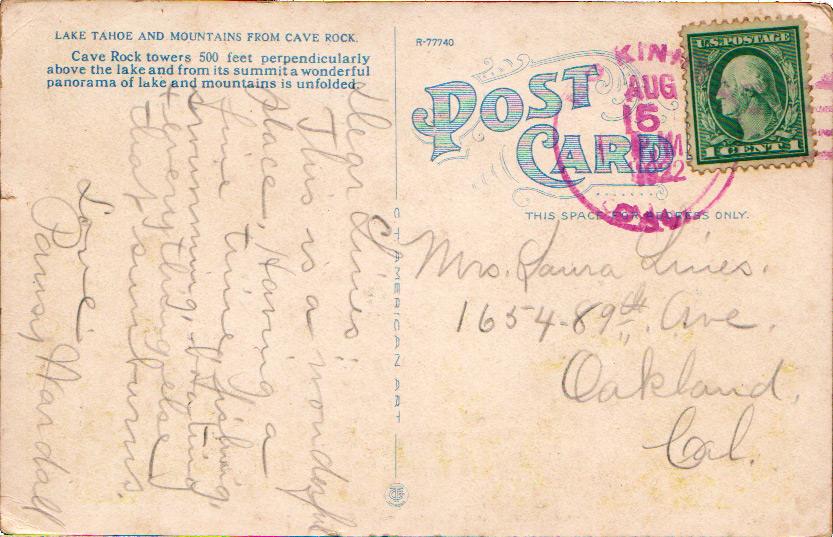 LAKE TAHOE AND MOUNTAINS FROM CAVE ROCK.
Cave Rock towers 500 feet perpendicularly
above the lake and from its summit a wonderful
panorama of lake and mountains is unfolded.
Dear Lines:
This is a wonderful
place. Having a
fine time fishing,
swimming, boating,
& everything else
that sunburns.
Love
Pansy
C T AMERICAN ART
R-77740
POST
CARD
THIS SPACE FOR ADDRESS ONLY.
AUG
15
1922
U.S. POSTAGE
1 CENT 1
Mrs. Laura Lines.
1654-89th. Ave.
Oakland,
Cal.